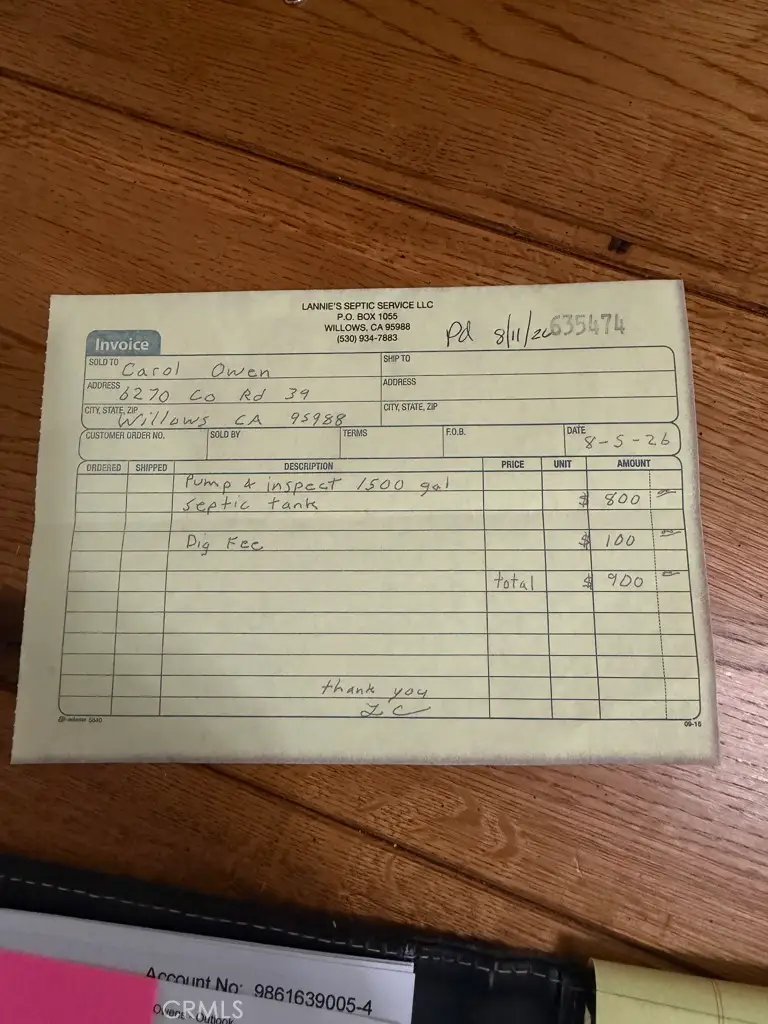 LANNIE'S SEPTIC SERVICE LLC
P.O. BOX 1055
WILLOWS, CA 95988
(530) 934-7883
Pd 8/11/26
635474
Invoice
SOLD TO Carol Owen
SHIP TO
ADDRESS 6270 Co Rd 39
ADDRESS
CITY, STATE, ZIP Willows CA 95988
CITY, STATE, ZIP
CUSTOMER ORDER NO. SOLD BY TERMS F.O.B. DATE 8-5-26
ORDERED SHIPPED DESCRIPTION PRICE UNIT AMOUNT
Pump & inspect 1500 gal
septic tank $ 800
Dig Fee $ 100
total $ 900
thank you
LC
5840
09-15
Account No: 9861639005-4
Owens - Outlook
CRMLS